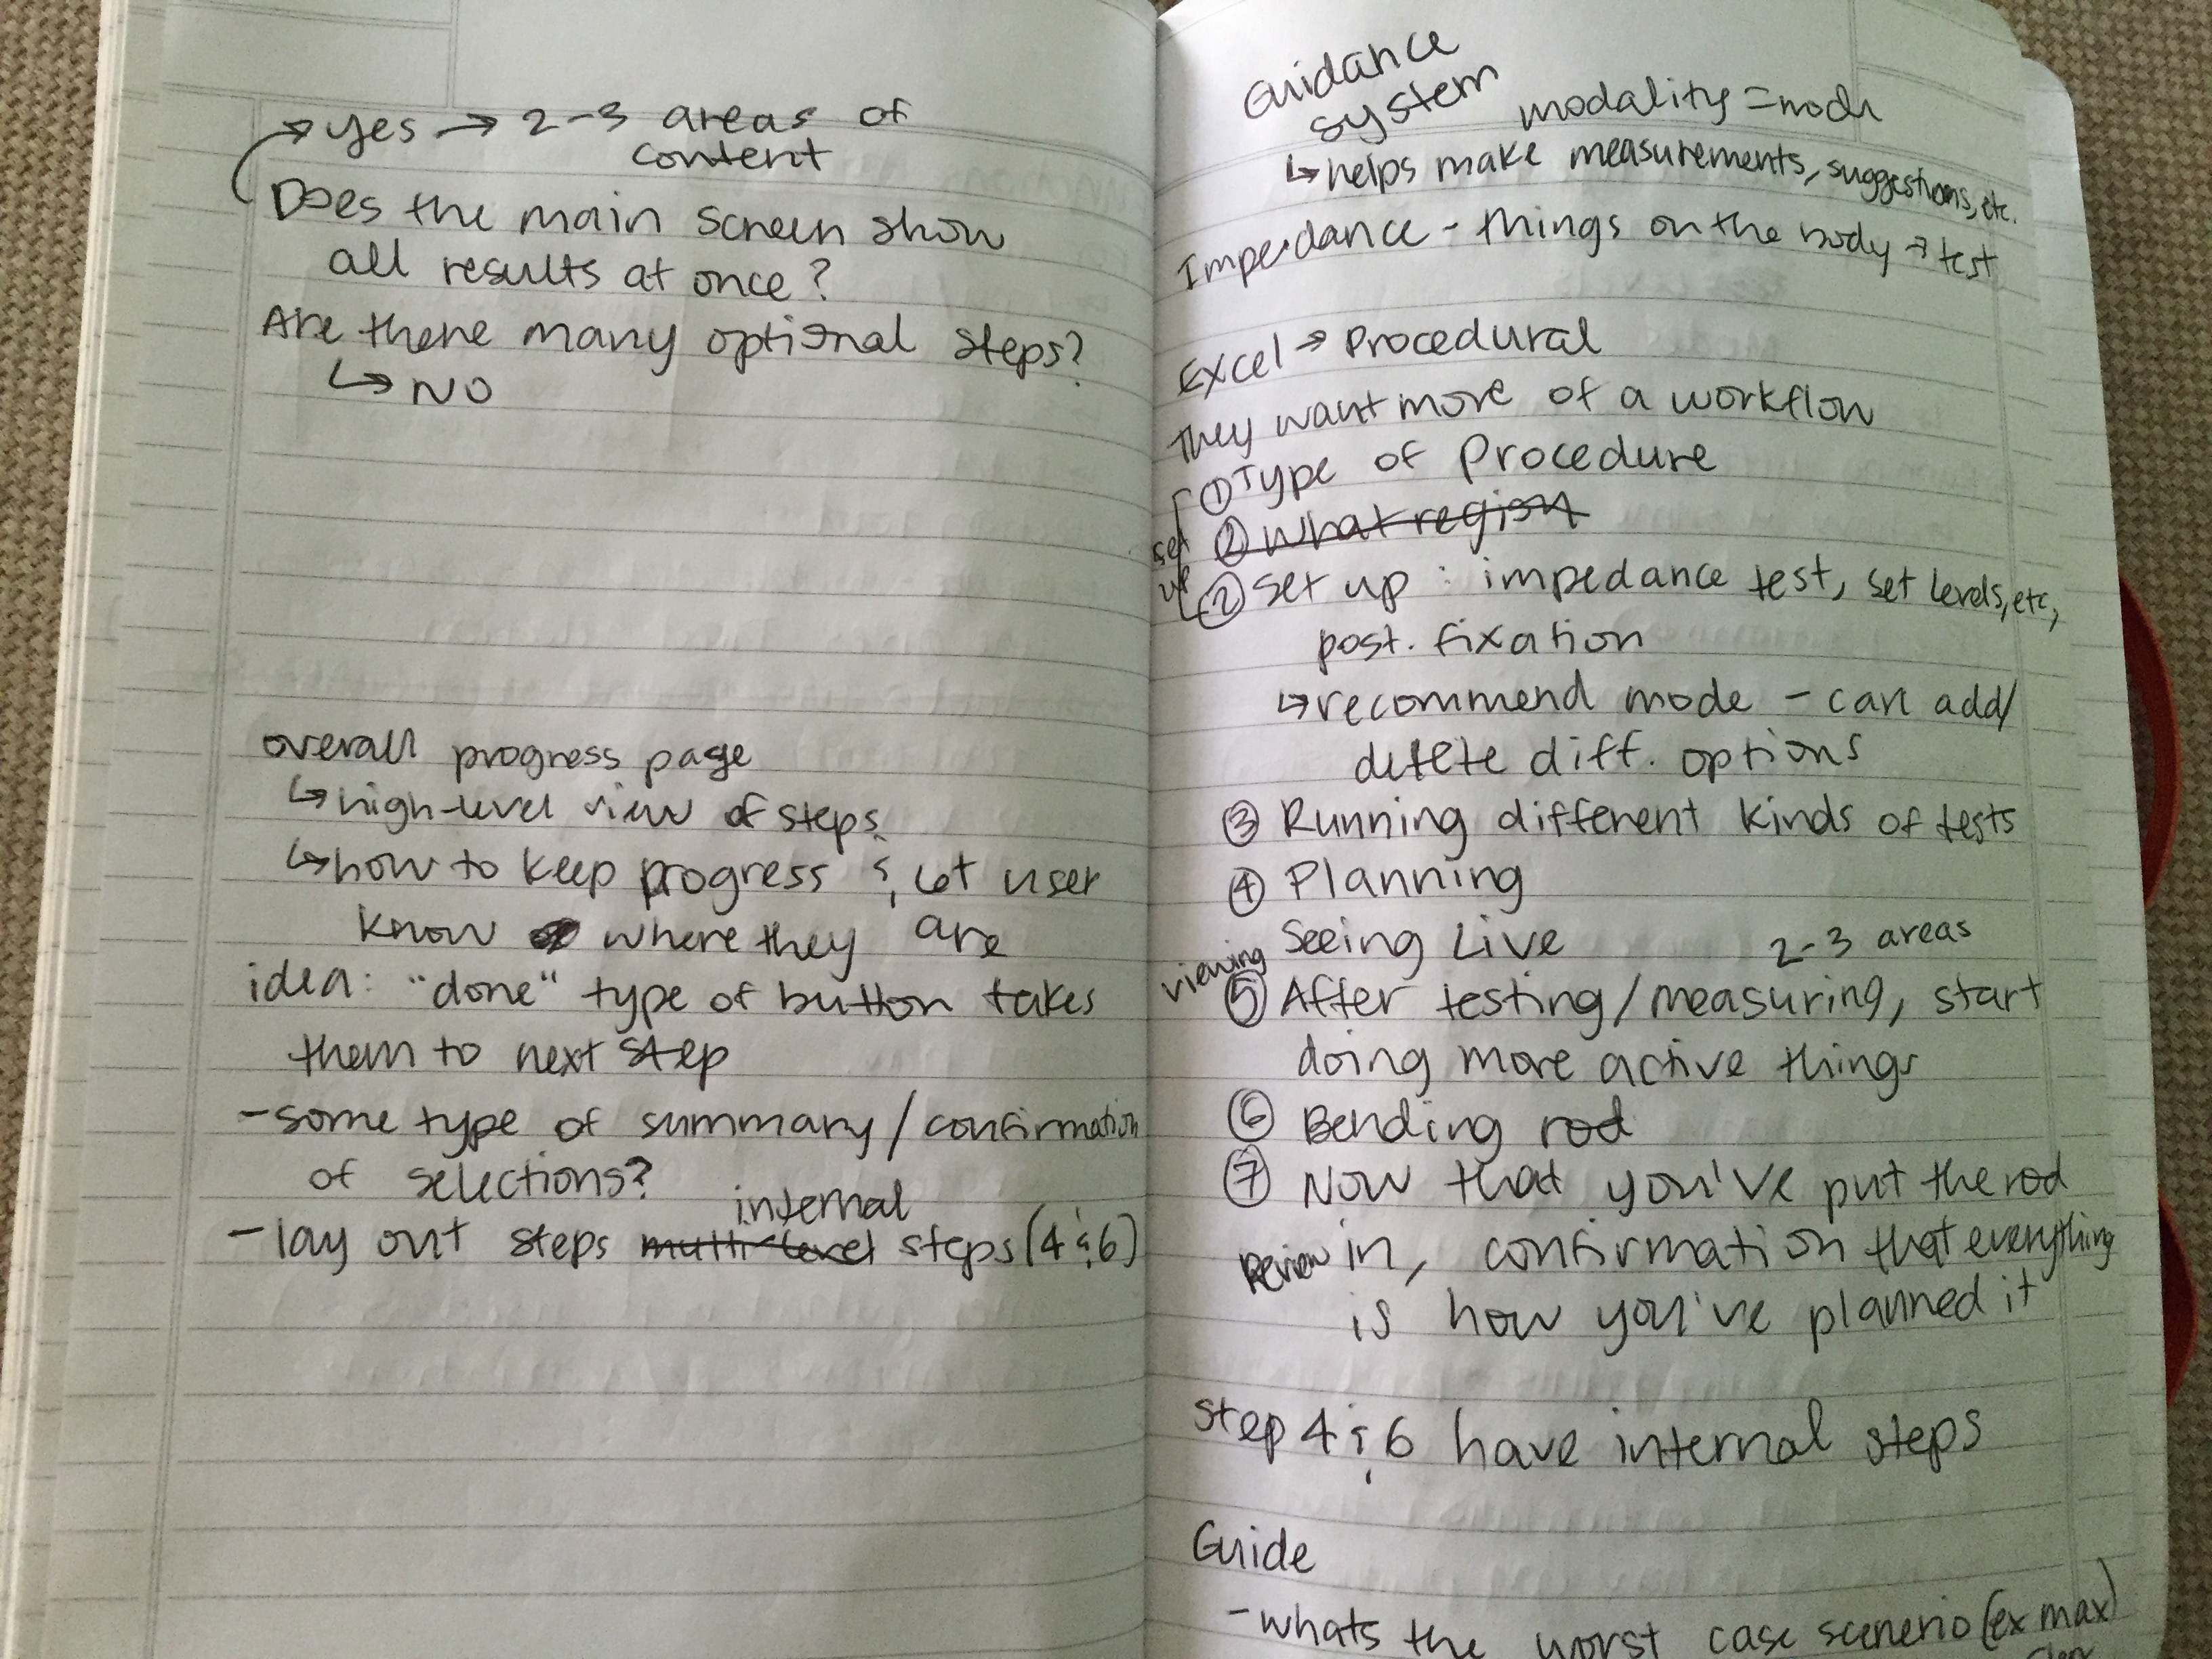 → yes → 2-3 areas of
content
Does the main screen show
all results at once?
Are there many optional steps?
↳ NO
overall progress page
↳ high-level view of steps
↳ how to keep progress & let user
know where they are
idea: "done" type of button takes
them to next step
- some type of summary/confirmation
of selections?
internal
- lay out steps multi-level steps (4 & 6)
Guidance
system
modality = mode
↳ helps make measurements, suggestions, etc.
Impedance - things on the body → test
Excel → Procedural
They want more of a workflow
① Type of Procedure
② What region
set
up
② Set up : impedance test, set levels, etc,
post. fixation
↳ recommend mode - can add/
delete diff. options
③ Running different kinds of tests
④ Planning
Seeing Live
2-3 areas
viewing
⑤ After testing/measuring, start
doing more active things
⑥ Bending rod
⑦ Now that you've put the rod
Review in, confirmation that everything
is how you've planned it
Step 4 & 6 have internal steps
Guide
- whats the worst case scenerio (ex max)